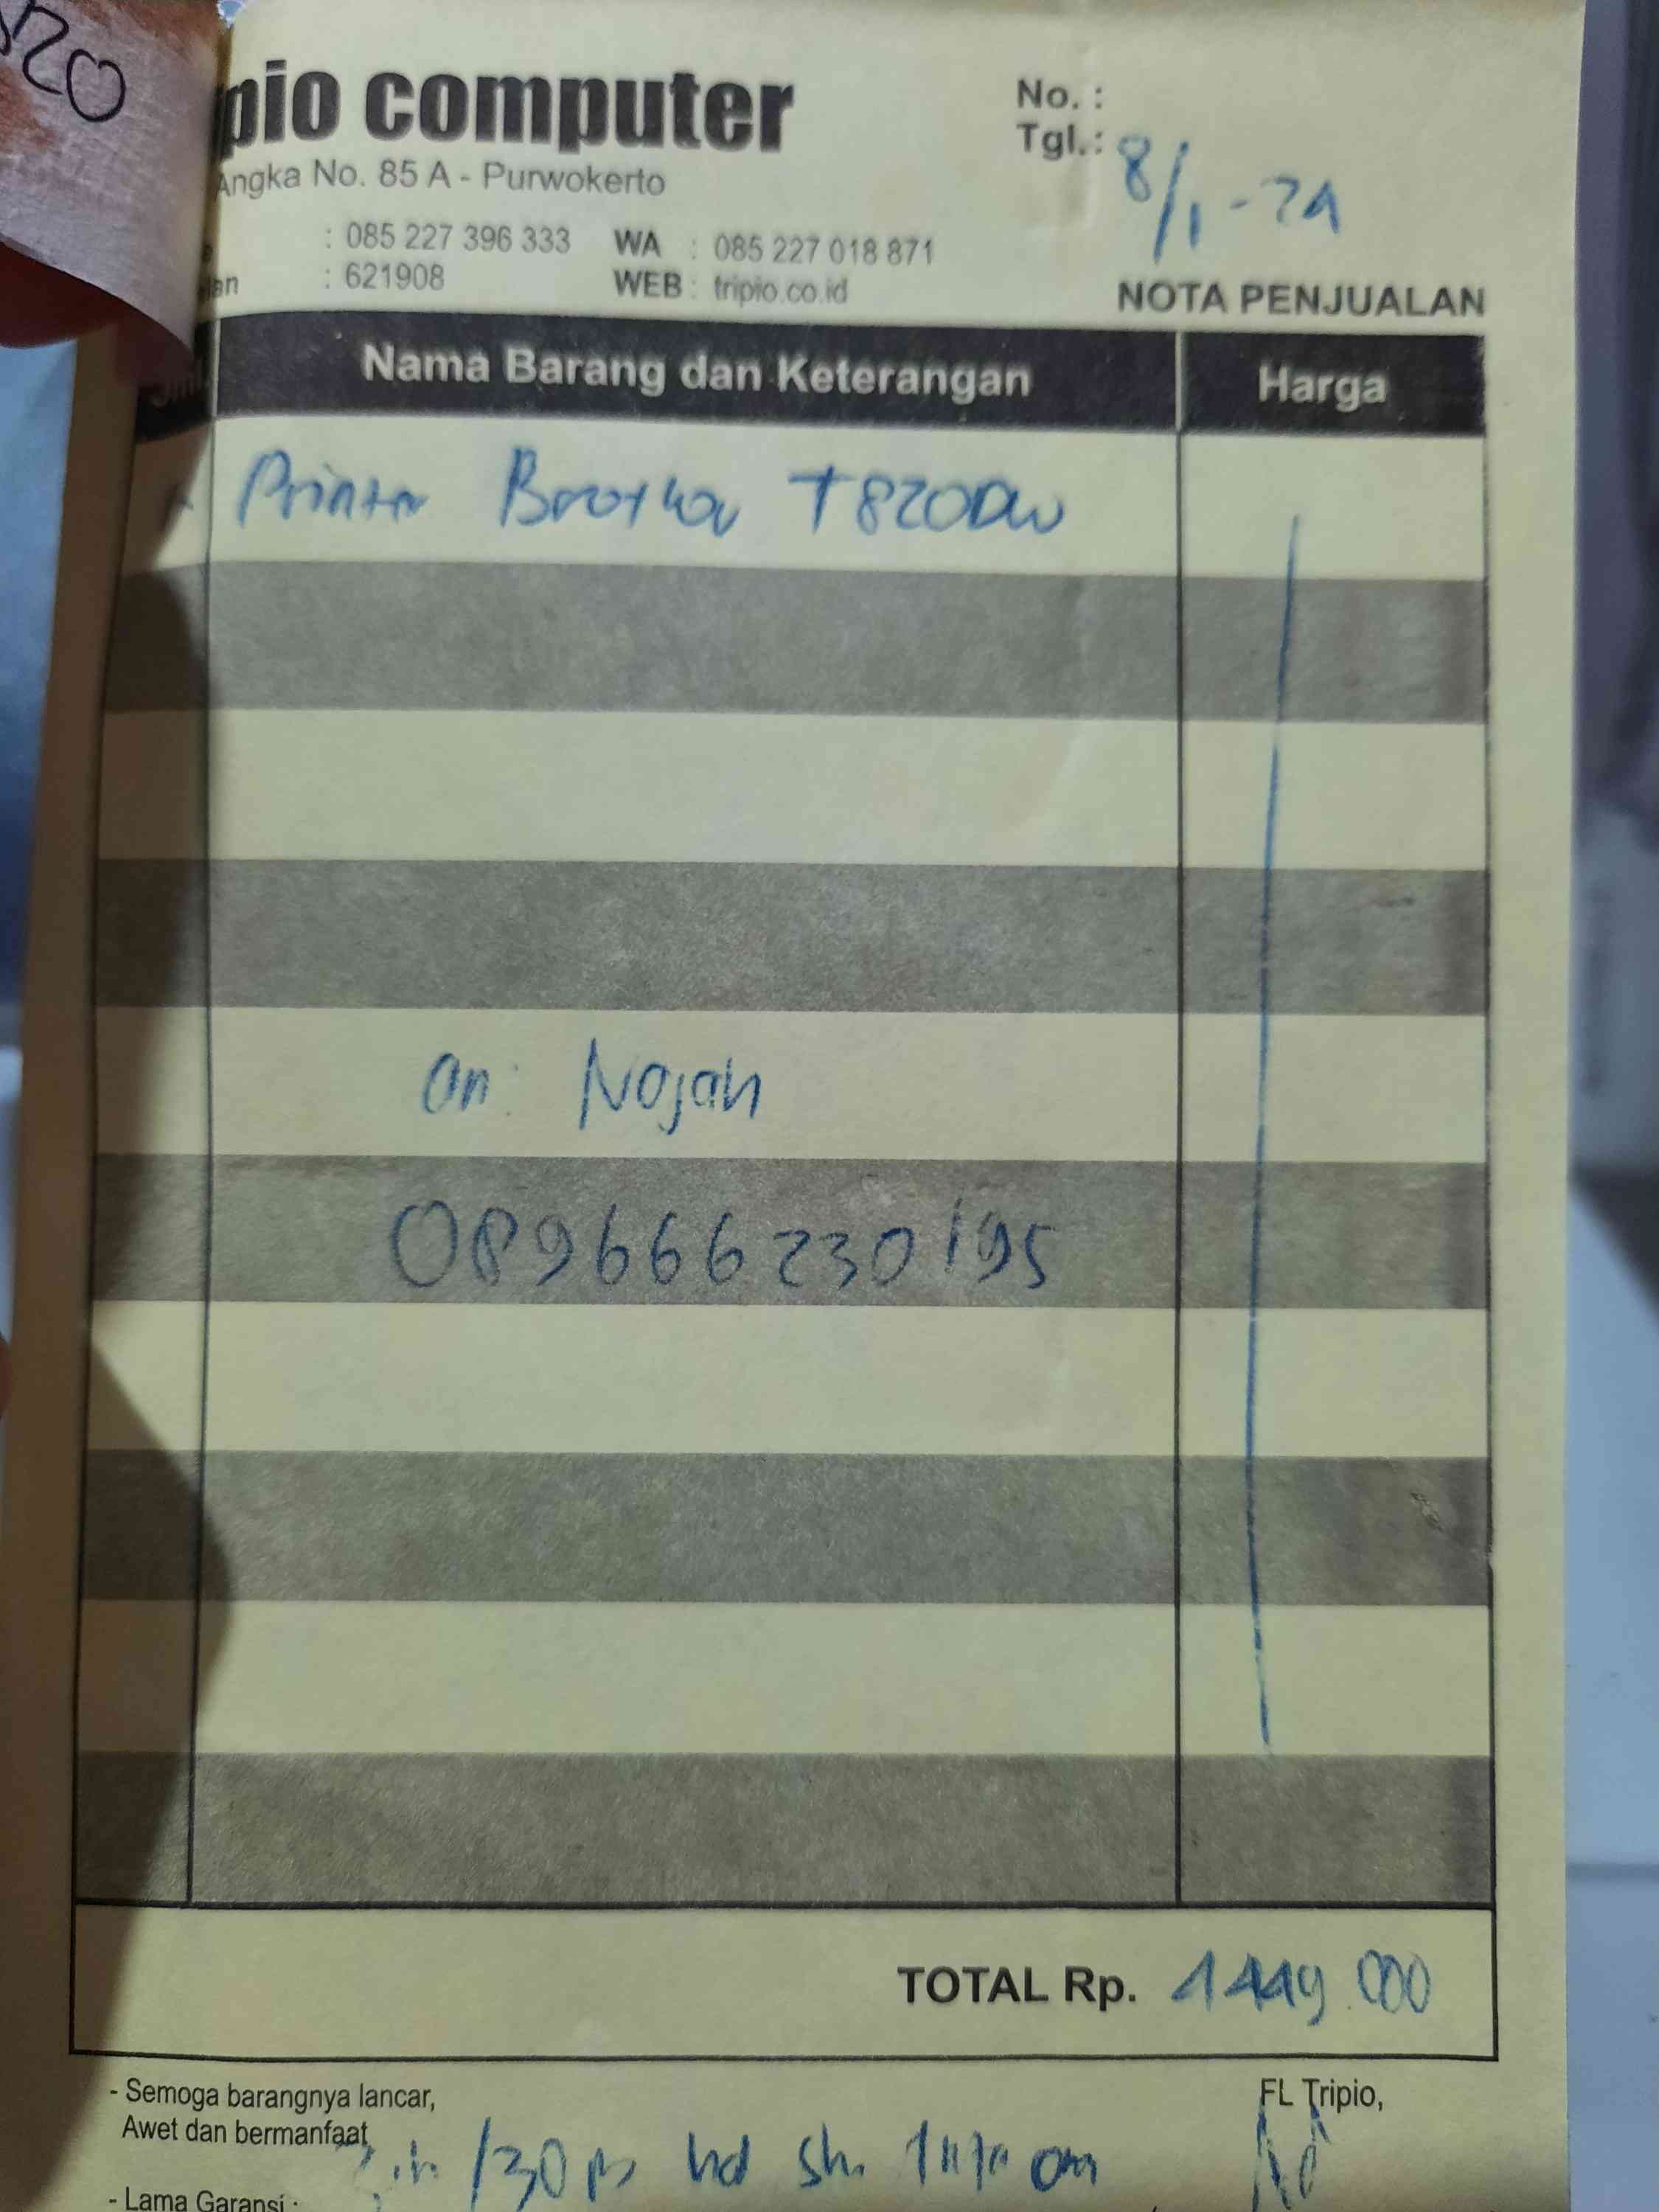 520
pio computer
No. :
Tgl.: 8/1-24
Angka No. 85 A - Purwokerto
: 085 227 396 333 WA : 085 227 018 871
: 621908 WEB : tripio.co.id
NOTA PENJUALAN
Nama Barang dan Keterangan Harga
Printer Brother T820DW
an Najah
089666230195
TOTAL Rp. 1449.000
- Semoga barangnya lancar,
Awet dan bermanfaat
FL Tripio,
/30
- Lama Garansi :